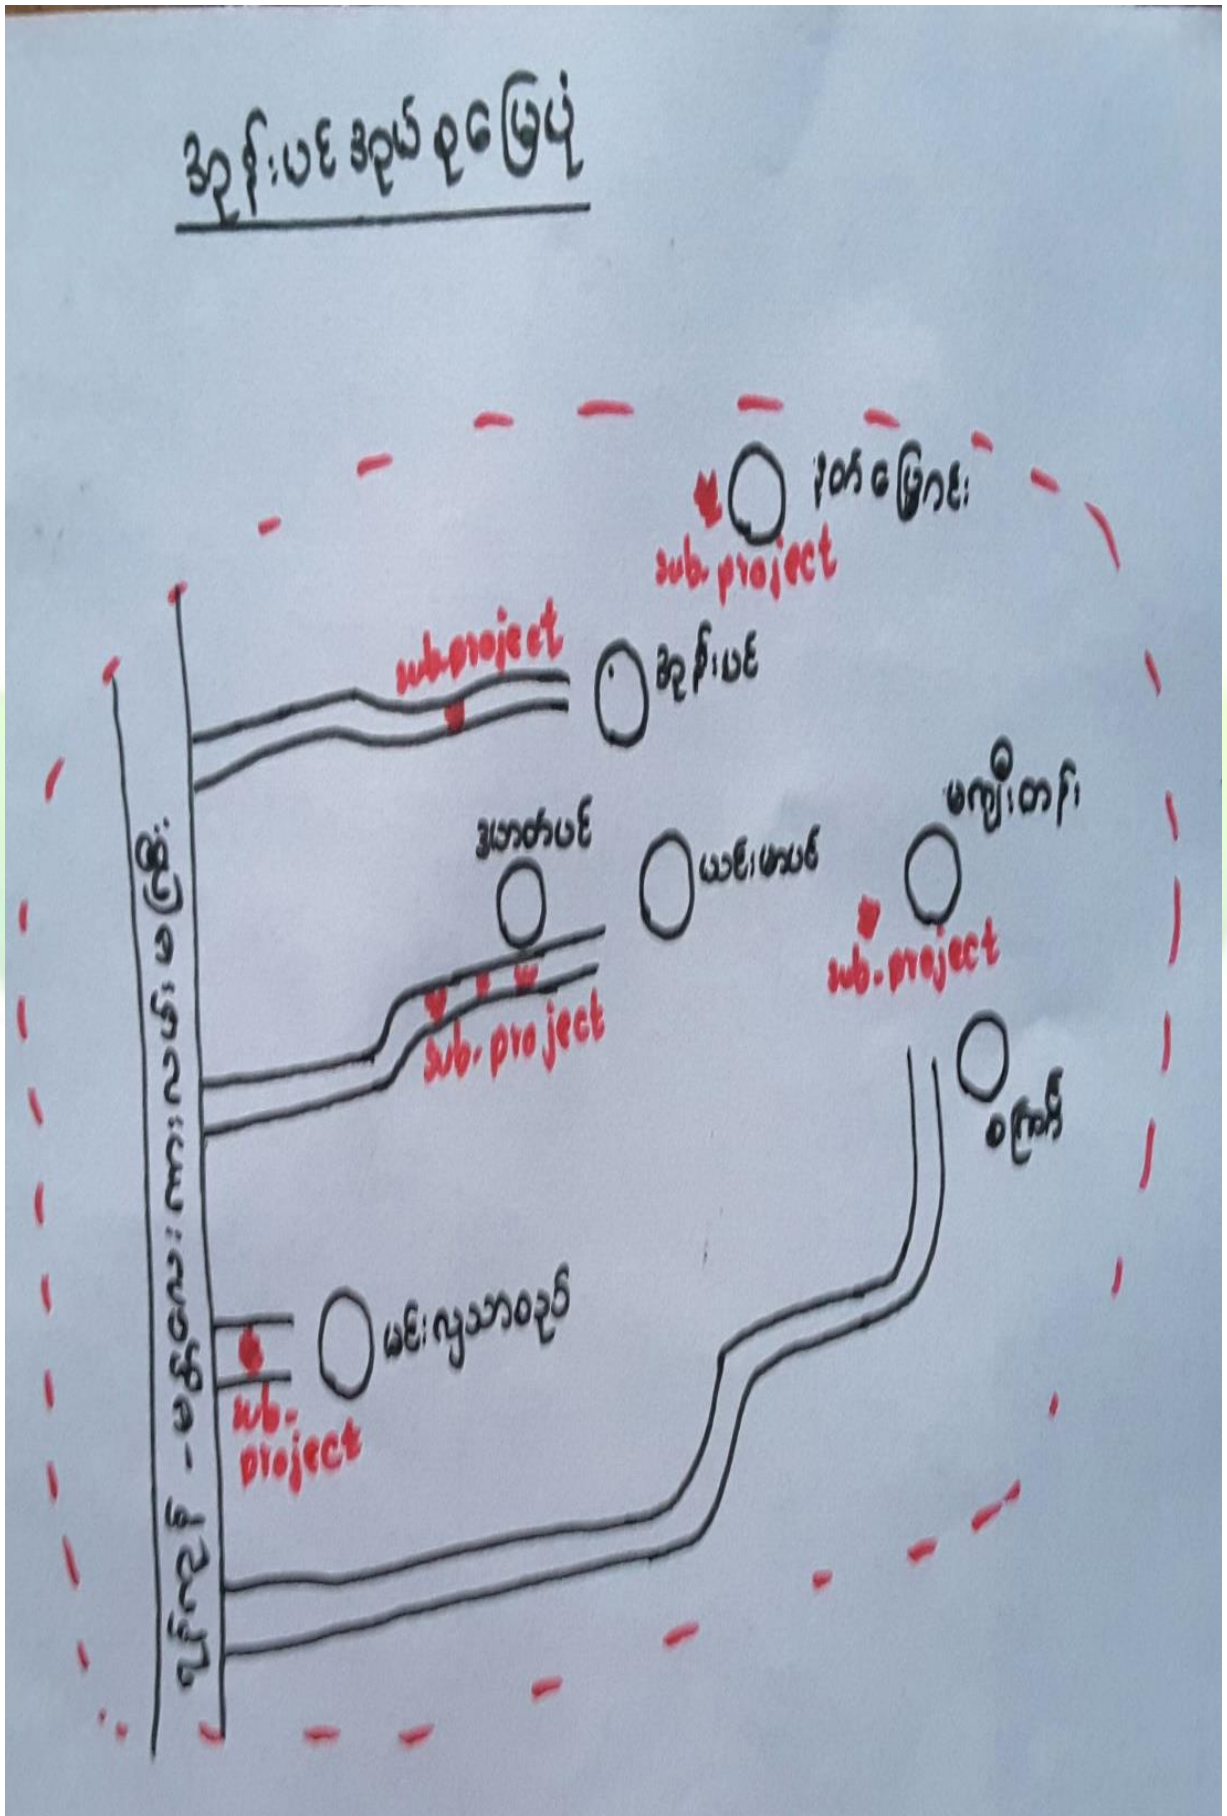 အုန်းပင်အုပ်စုမြေပုံ
နတ်မြေကင်း
sub-project
sub-project
အုန်းပင်
မကျီးတန်း
ဒယတ်ပင်
ယင်းမာပင်
sub-project
sub-project
စကြာဂီ
မင်းလှသာစဥပ်
sub-
project